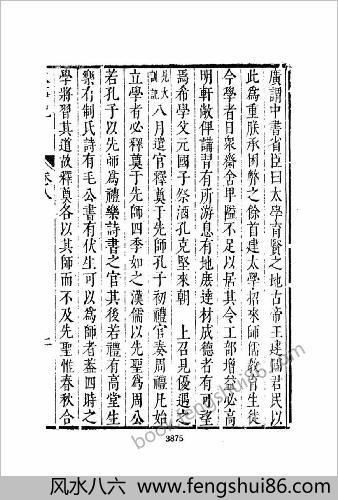 廣謂中書省臣曰太學育賢之地古帝王建國君民以
此為重朕承困弊之餘首建太學招來師儒教育生徒
今學者日衆齋舍卑隘不足以居其令工部增益必高
明軒敞俾講習有所游息有地庶達材成德者有可望
焉希學父元國子祭酒孔克堅來朝 上召見優遇之
見大訓記八月遣官釋奠于先師孔子初禮官奏周禮凡始
立學者必釋奠于先師四季如之漢儒以先聖為周公
若孔子以先師為禮樂詩書之官其後若禮有高堂生
樂有制氏詩有毛公書有伏生可以為師者蓋四時之
學將習其道故釋奠各以其師而不及先聖惟春秋合
卷八
3875
book.fengshui86.com
风水八六 - www.fengshui86.com